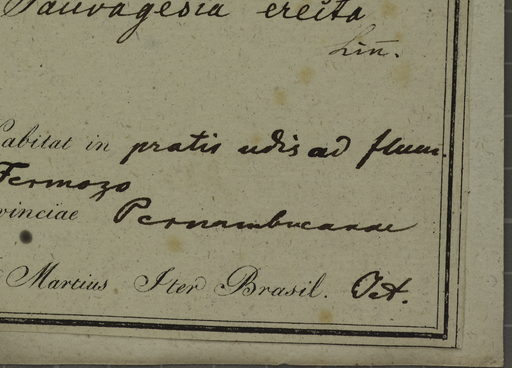 Sauvagesia erecta
Lin̄.
Habitat in pratis udis ad flum.
Fermozo
vinciae Pernambucanae
Martius Iter Brasil. Oct.